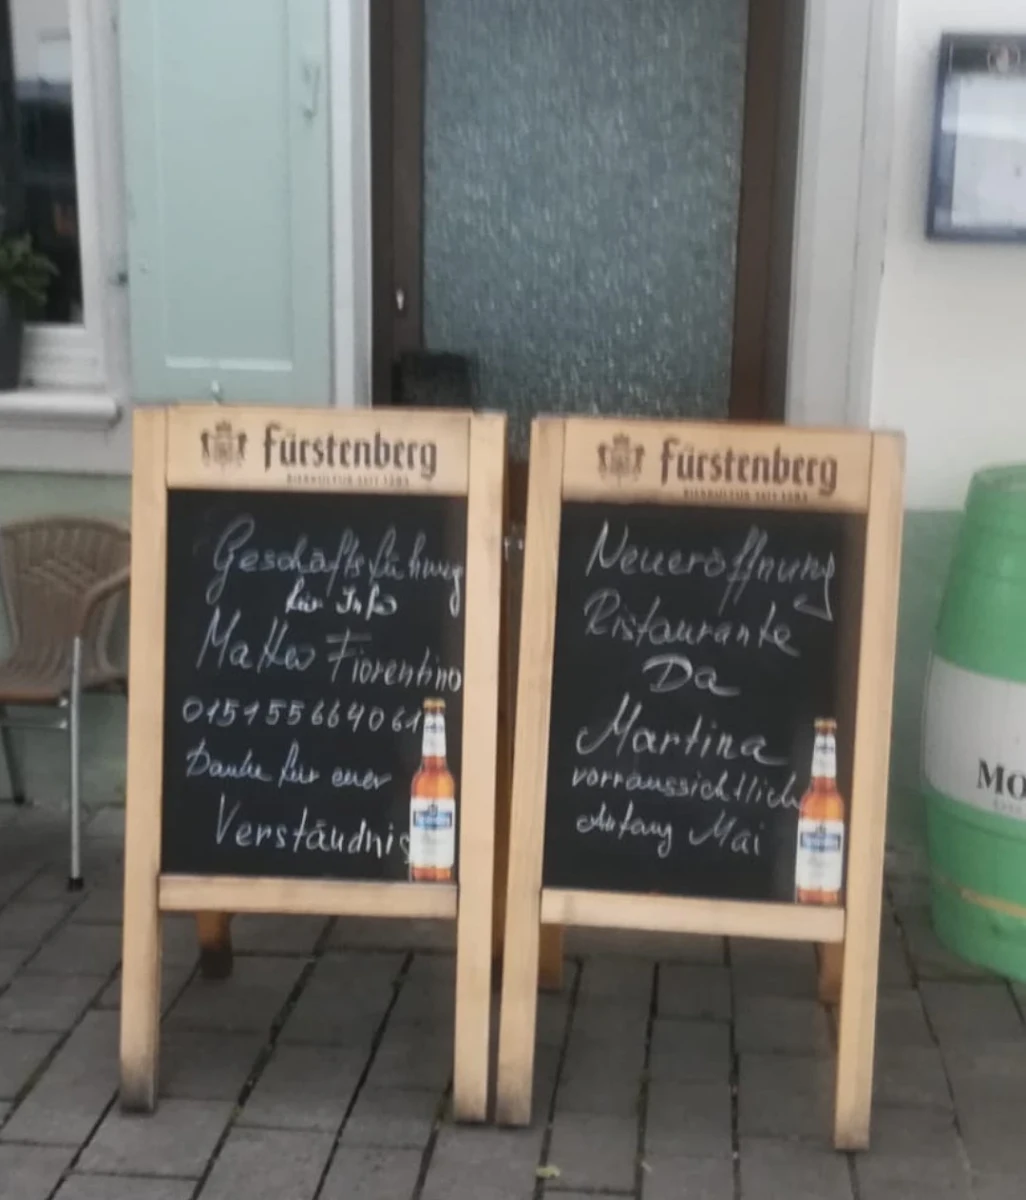 Fürstenberg
BIERKULTUR SEIT 1283
Geschäftsführung
für Info
Matteo Fiorentino
015155664061
Danke für euer
Verständnis
Fürstenberg
BIERKULTUR SEIT 1283
Neueröffnung
Ristaurante
Da
Martina
vorraussichtlich
Anfang Mai
MO